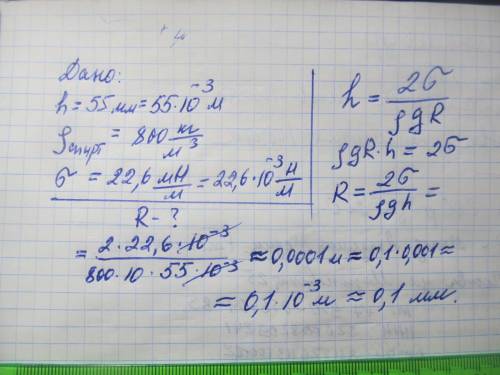 Дано:
h = 55 мм = 55·10⁻³ м
ρспирт = 800 кг/м³
σ = 22,6 мН/м = 22,6·10⁻³ Н/м
R - ?
h = 2σ/ρgR
ρgR·h = 2σ
R = 2σ/ρgh =
= 2·22,6·10⁻³/800·10·55·10⁻³ ≈ 0,0001 м ≈ 0,1·0,001 ≈
≈ 0,1·10⁻³ м ≈ 0,1 мм.